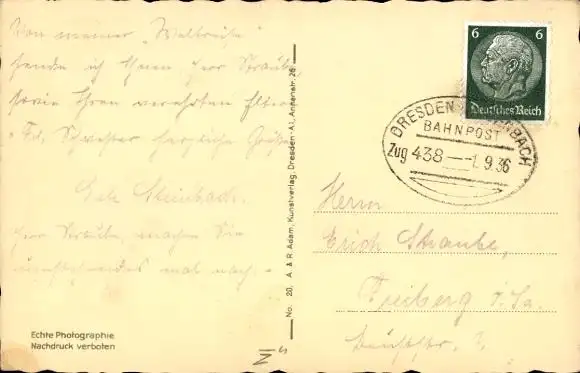 Von meiner „Weltreise"
sende ich Ihnen Herr Straube
sowie Ihren verehrten
Frl. Schwester herzliche Grüße
Steinbach.
Herr Straube, machen Sie
mal nach.
Echte Photographie
Nachdruck verboten
No. 20. A. & R. Adam, Kunstverlag, Dresden-A.1, Annenstr. 26
6 6
Deutsches Reich
DRESDEN
BACH
BAHNPOST
Zug 438 — 1.9.36
Herrn
Erich Straube,
Freiberg i. Sa.